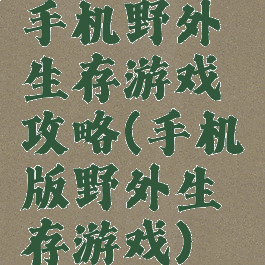 手机野外
生存游戏
攻略(手机
版野外生
存游戏)